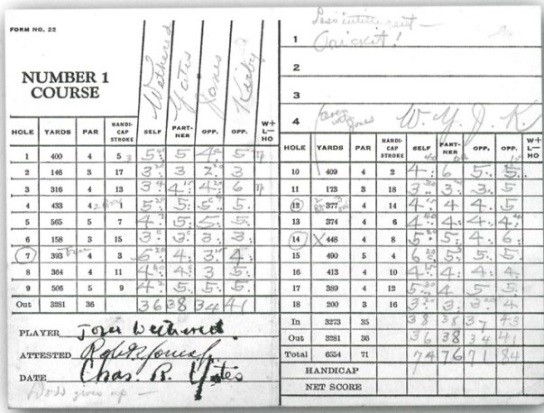 FORM NO. 22
NUMBER 1
COURSE
Wethered
Yates
Jones
Keeby
HOLE YARDS PAR HANDICAP STROKE SELF PARTNER OPP. OPP. W+ L— HO
1 400 4 5 5 5 4 5
2 146 3 17 3 3 2 3
3 316 4 13 3 4 4 6
4 433 4 1 5 5 5 5
5 565 5 7 4 5 5 5
6 158 3 15 3 3 3 3
7 393 4 3 6 4 3 4
8 364 4 11 4 4 3 5
9 506 5 9 4 5 5 5
Out 3281 36 36 38 34 41
PLAYER Joyce Wethered
ATTESTED
DATE Chas. R. Yates
gives up —
1
Cricket!
2
3
4 Jones W. Y. J. K.
HOLE YARDS PAR HANDICAP STROKE SELF PARTNER OPP. OPP. W+ L— HO
10 409 4 2 4 6 5 5
11 173 3 18 3 3 3 5
12 377 4 14 4 4 4 5
13 374 4 6 4 4 4 4
14 X 448 4 8 5 5 4 6
15 490 5 4 6 5 5 5
16 413 4 10 4 4 4 4
17 389 4 12 5 4 5 5
18 200 3 16 3 3 3 4
In 3273 35 38 38 37 43
Out 3281 36 36 38 34 41
Total 6554 71 74 76 71 84
HANDICAP
NET SCORE